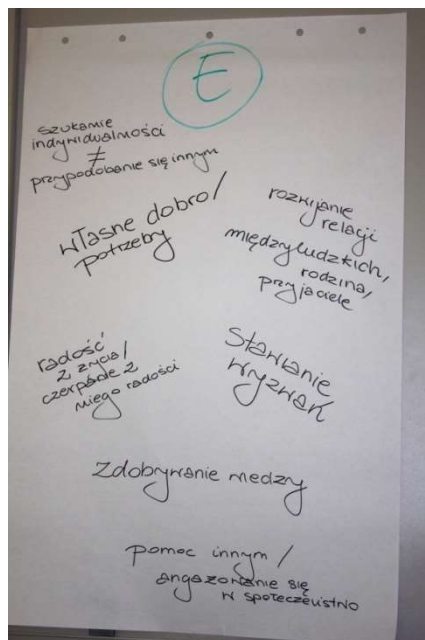 E
szukanie
indywidualności
≠
przypodobanie się innym
własne dobro/
potrzeby
rozwijanie
relacji
międzyludzkich,
rodzina,
przyjaciele
radość
z życia/
czerpanie z
niego radości
Stawianie
wyzwań
Zdobywanie wiedzy
pomoc innym /
angażowanie się
w społeczeństwo